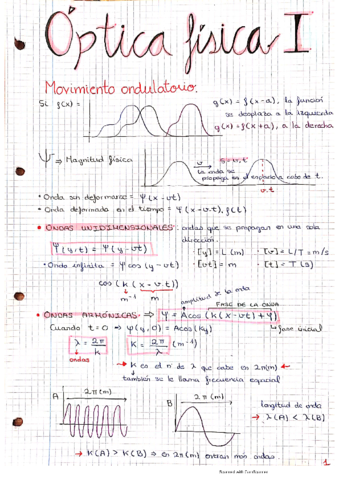 Óptica física I
Movimiento ondulatorio:
Si f(x) =
g(x) = f(x-a), la función
se desplaza a la izquierda
g(x) = f(x+a), a la derecha
Ψ ⇒ Magnitud física
v
la onda se
propaga en el espacio a cabo de t.
v.t
• Onda sin deformarse = Ψ(x-vt)
• Onda deformada en el tiempo = Ψ(x-v.t), f(t)
• ONDAS UNIDIMENSIONALES: ondas que se propagan en una sola
dirección.
Ψ(y,t) = Ψ(y-vt)
· [y] = L (m) · [v] = L/T = m/s
· [vt] = m · [t] = T (s)
• Onda infinita = Ψcos(y-vt)
cos(k(x-v.t))
m⁻¹ m
amplitud de la onda
FASE DE LA ONDA
• ONDAS ARMÓNICAS: ⇒ Ψ = Acos(k(x-vt)+φ)
Cuando t=0 ⇒ Ψ(y,0) = Acos(ky)
fase inicial
λ = 2π/k
K = 2π/λ (m⁻¹)
ondas
→ K es el nº de λ que cabe en 2π(m)
también se le llama frecuencia espacial
A 2π(m)
B 2π(m)
longitud de onda
→ λ(A) < λ(B)
→ K(A) > K(B) ⇒ en 2π(m) entran más ondas
1